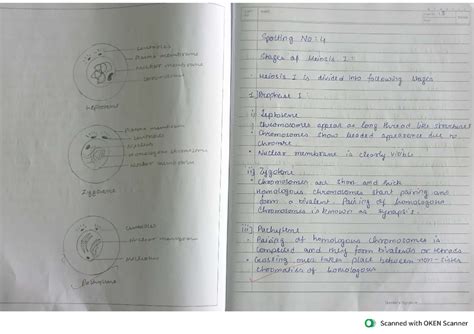 centrioles
Plasma membrane
Nuclear membrane
Leptotene
Plasma membrane
centrioles
Nucleus
Homologous chromosomes
Nuclear membrane
Zygotene
Centrioles
Nuclear membrane
Pachytene
Spotting No: 4
Stages of Meiosis I :
• Meiosis I is divided into following stages
1) Prophase I :
i) Leptotene
• Chromosomes appear as long thread like structures
• Chromosomes show beaded appearance due to
• Nuclear membrane is clearly visible
ii) Zygotene :
• Chromosomes are short and thick
homologous chromosomes start pairing and
form a bivalent. Pairing of homologous
chromosomes is known as synapsis.
iii) Pachytene
• Pairing of homologous chromosomes is
completed and they form bivalents or tetrads
• Crossing over takes place between non-sister
chromatids of homologous
Scanned with OKEN Scanner